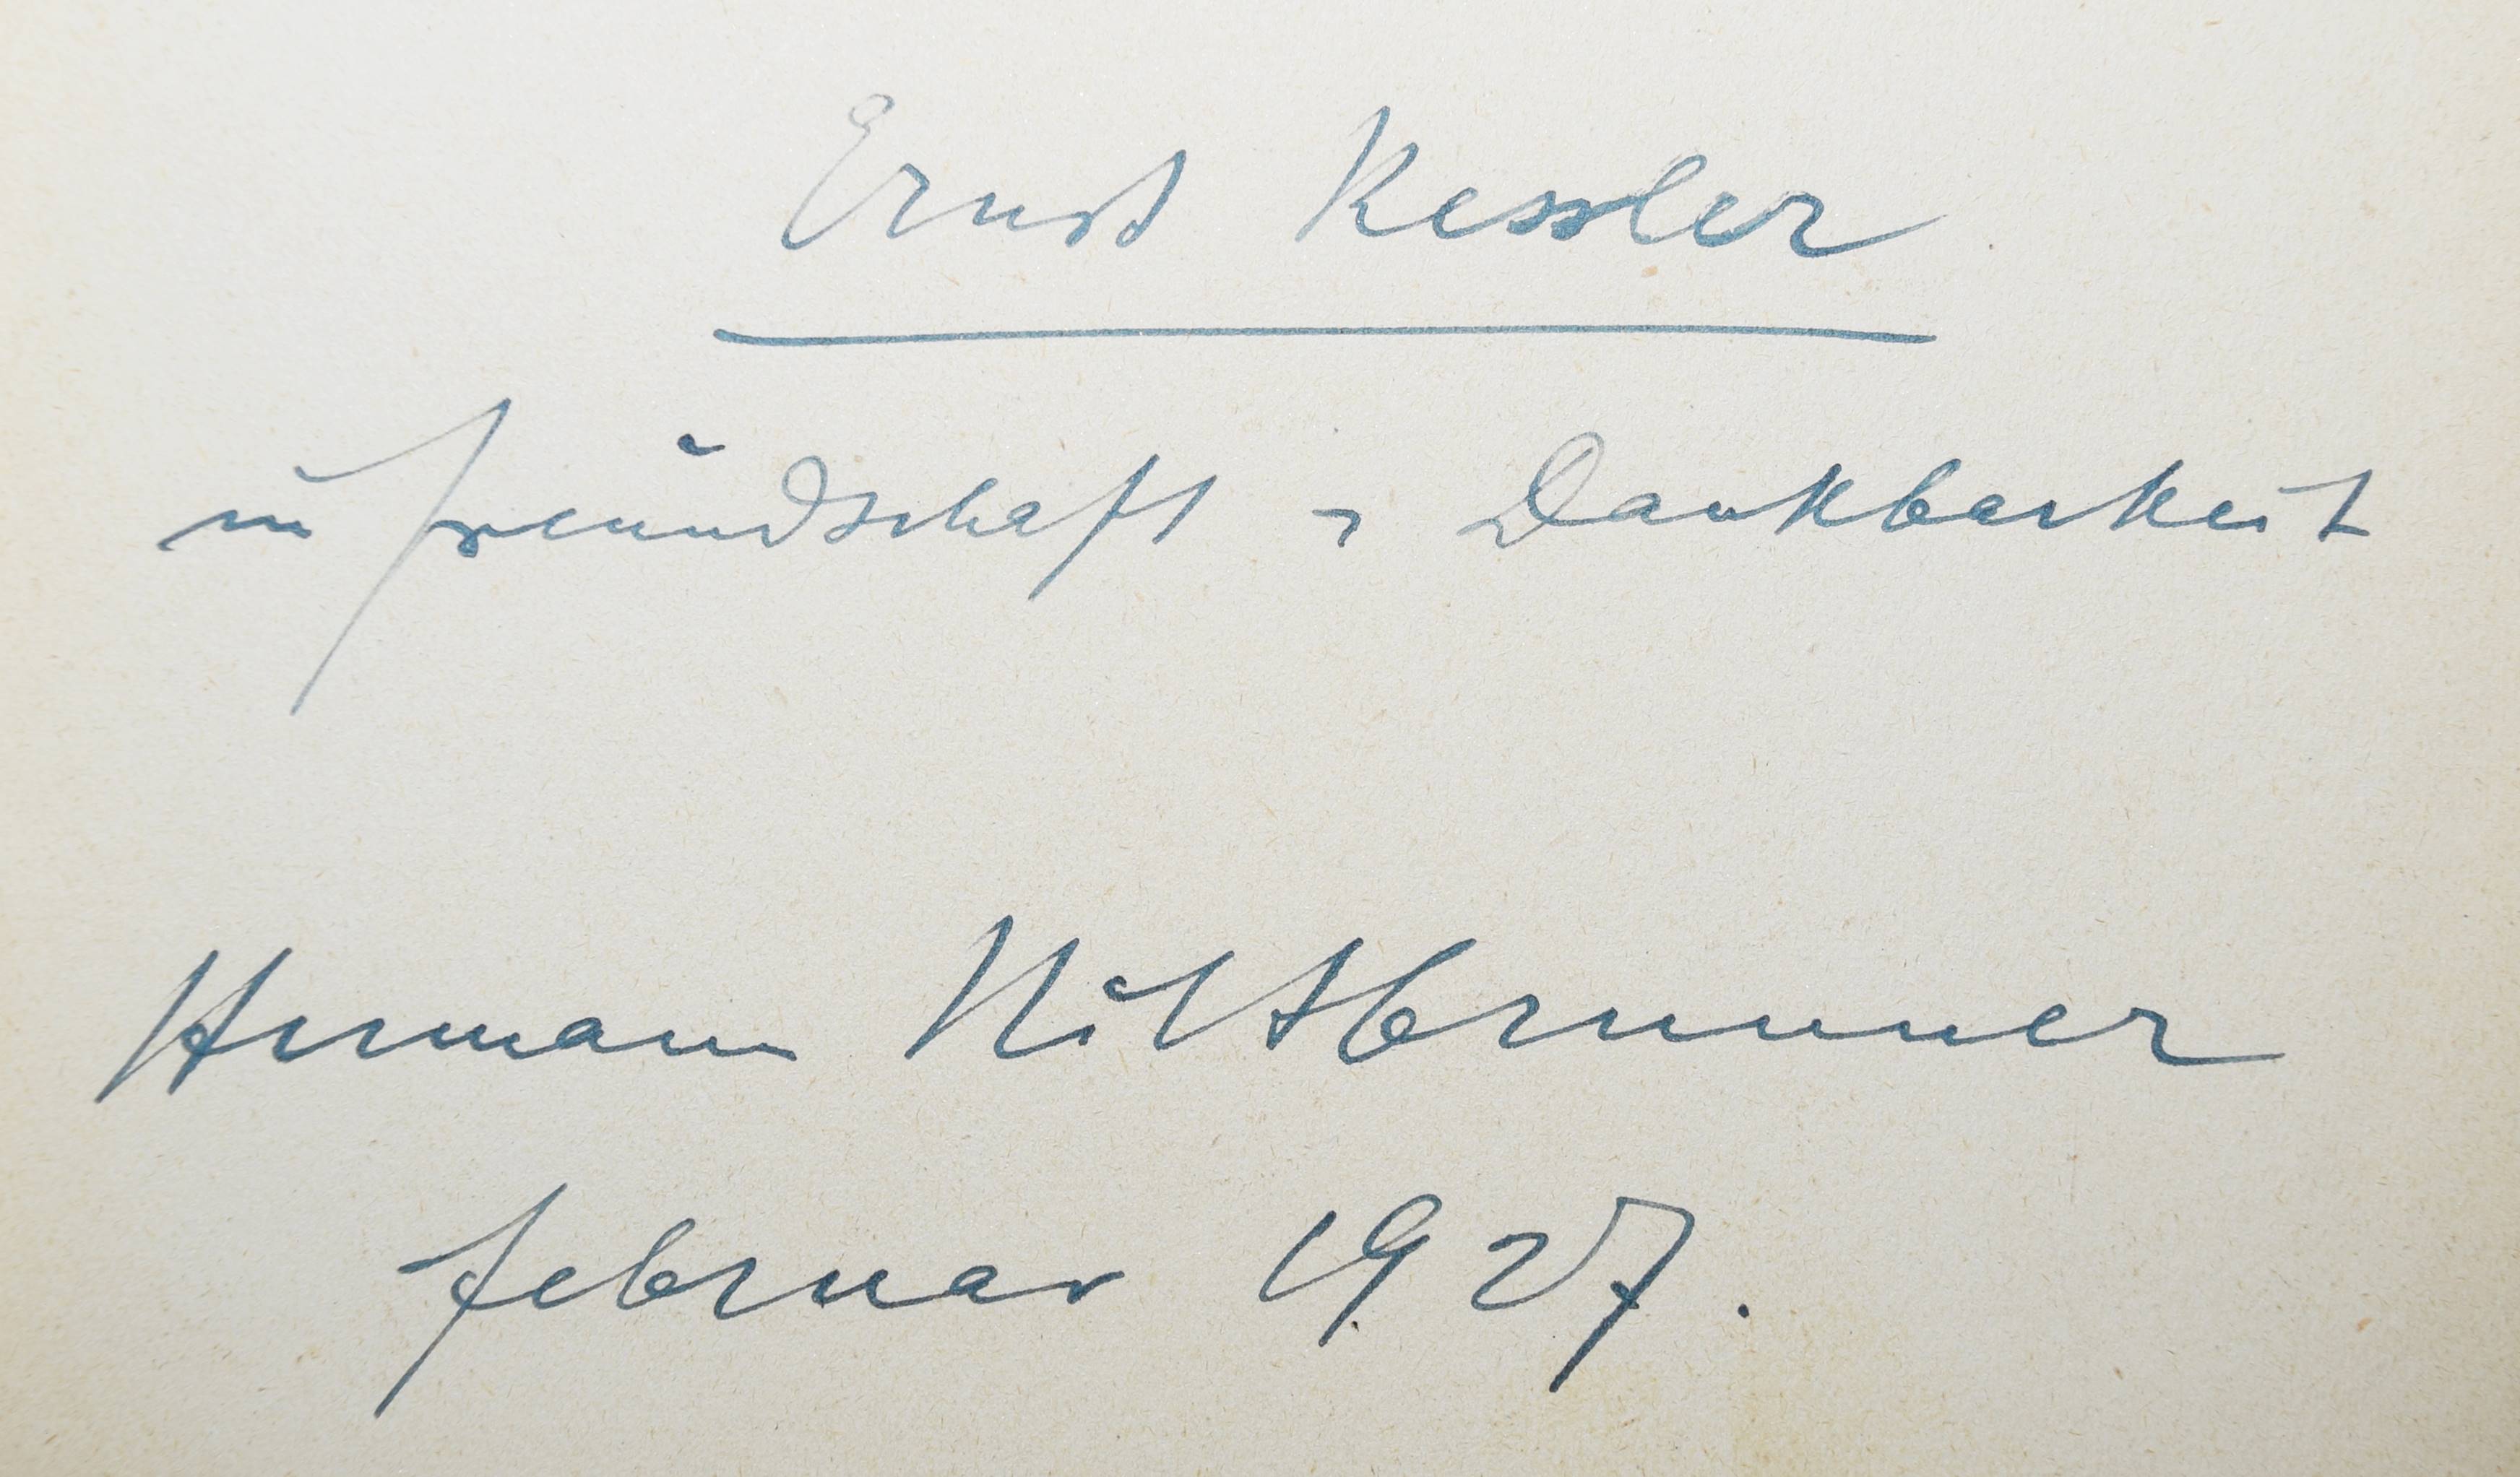 Ernst Kessler
in Freundschaft u Dankbarkeit
Hermann Hiltbrunner
Februar 1927.